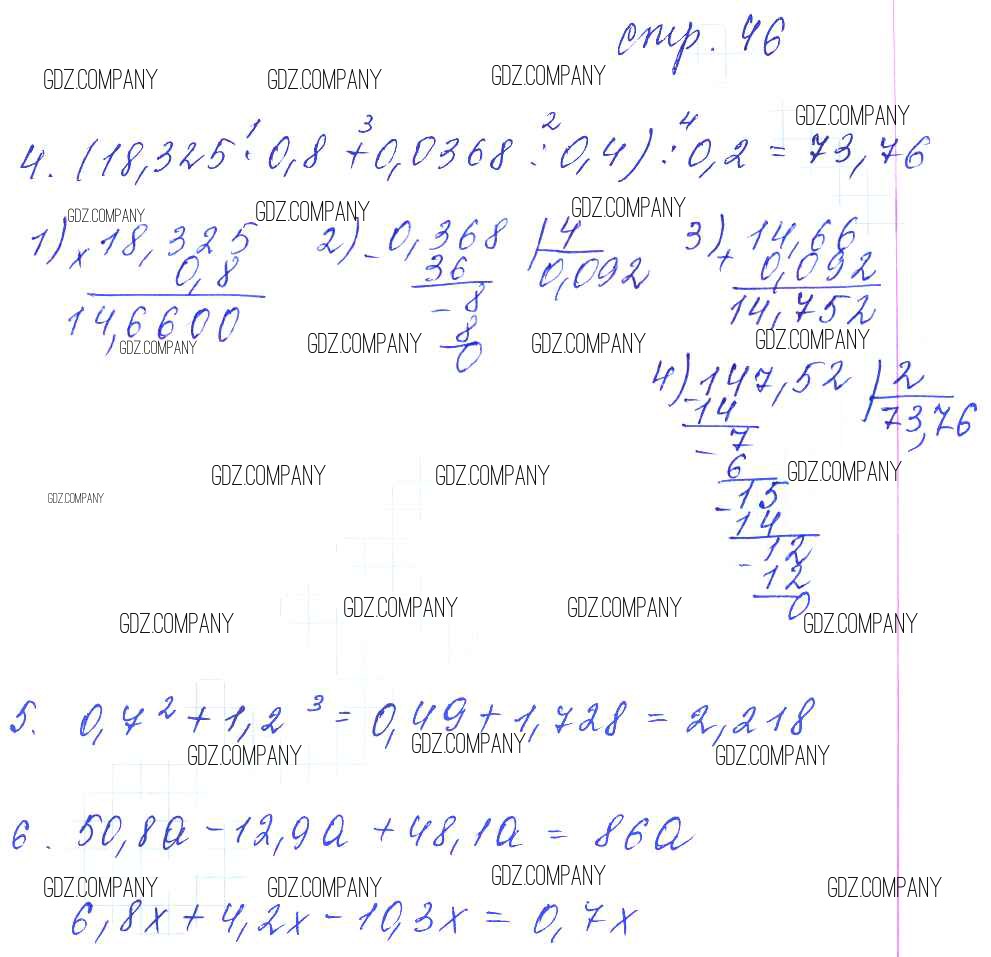 стр. 46
GDZ.COMPANY GDZ.COMPANY GDZ.COMPANY
GDZ.COMPANY
1 3 2 4
4. (18,325 · 0,8 + 0,0368 : 0,4) : 0,2 = 73,76
GDZ.COMPANY GDZ.COMPANY GDZ.COMPANY
1) x 18,325 2) - 0,368 | 4 3) + 14,66
0,8 36 0,092 0,092
14,6600 - 8 14,752
8
0
GDZ.COMPANY GDZ.COMPANY GDZ.COMPANY GDZ.COMPANY
4) - 147,52 | 2
14 73,76
- 7
6
- 15
14
- 12
12
0
GDZ.COMPANY GDZ.COMPANY GDZ.COMPANY GDZ.COMPANY
GDZ.COMPANY GDZ.COMPANY GDZ.COMPANY GDZ.COMPANY
5. 0,7² + 1,2³ = 0,49 + 1,728 = 2,218
GDZ.COMPANY GDZ.COMPANY GDZ.COMPANY
6. 50,8a - 12,9a + 48,1a = 86a
GDZ.COMPANY GDZ.COMPANY GDZ.COMPANY GDZ.COMPANY
6,8x + 4,2x - 10,3x = 0,7x